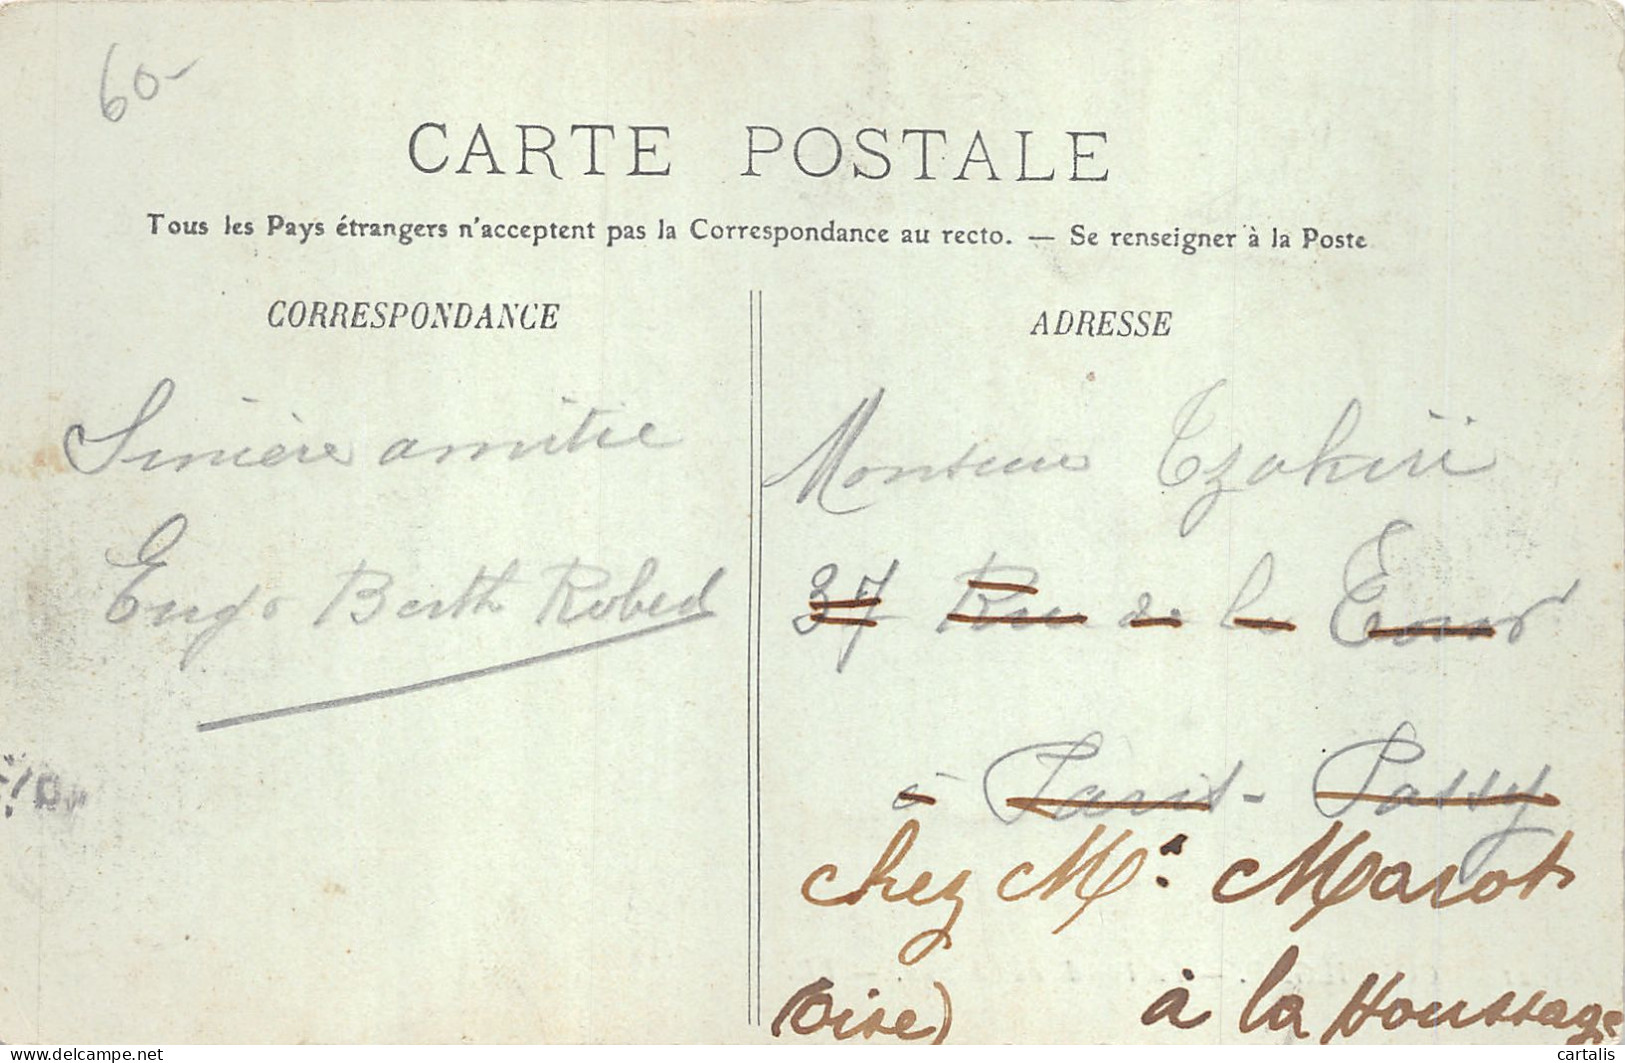 60-
CARTE POSTALE
Tous les Pays étrangers n'acceptent pas la Correspondance au recto. — Se renseigner à la Poste
CORRESPONDANCE
Sincère amitié
Berth Robert
ADRESSE
Monsieur Tzakiri
37 Rue de la Tour
à Paris-Passy
chez Mr. Marot
à la Houssage
(Oise)
cartalis